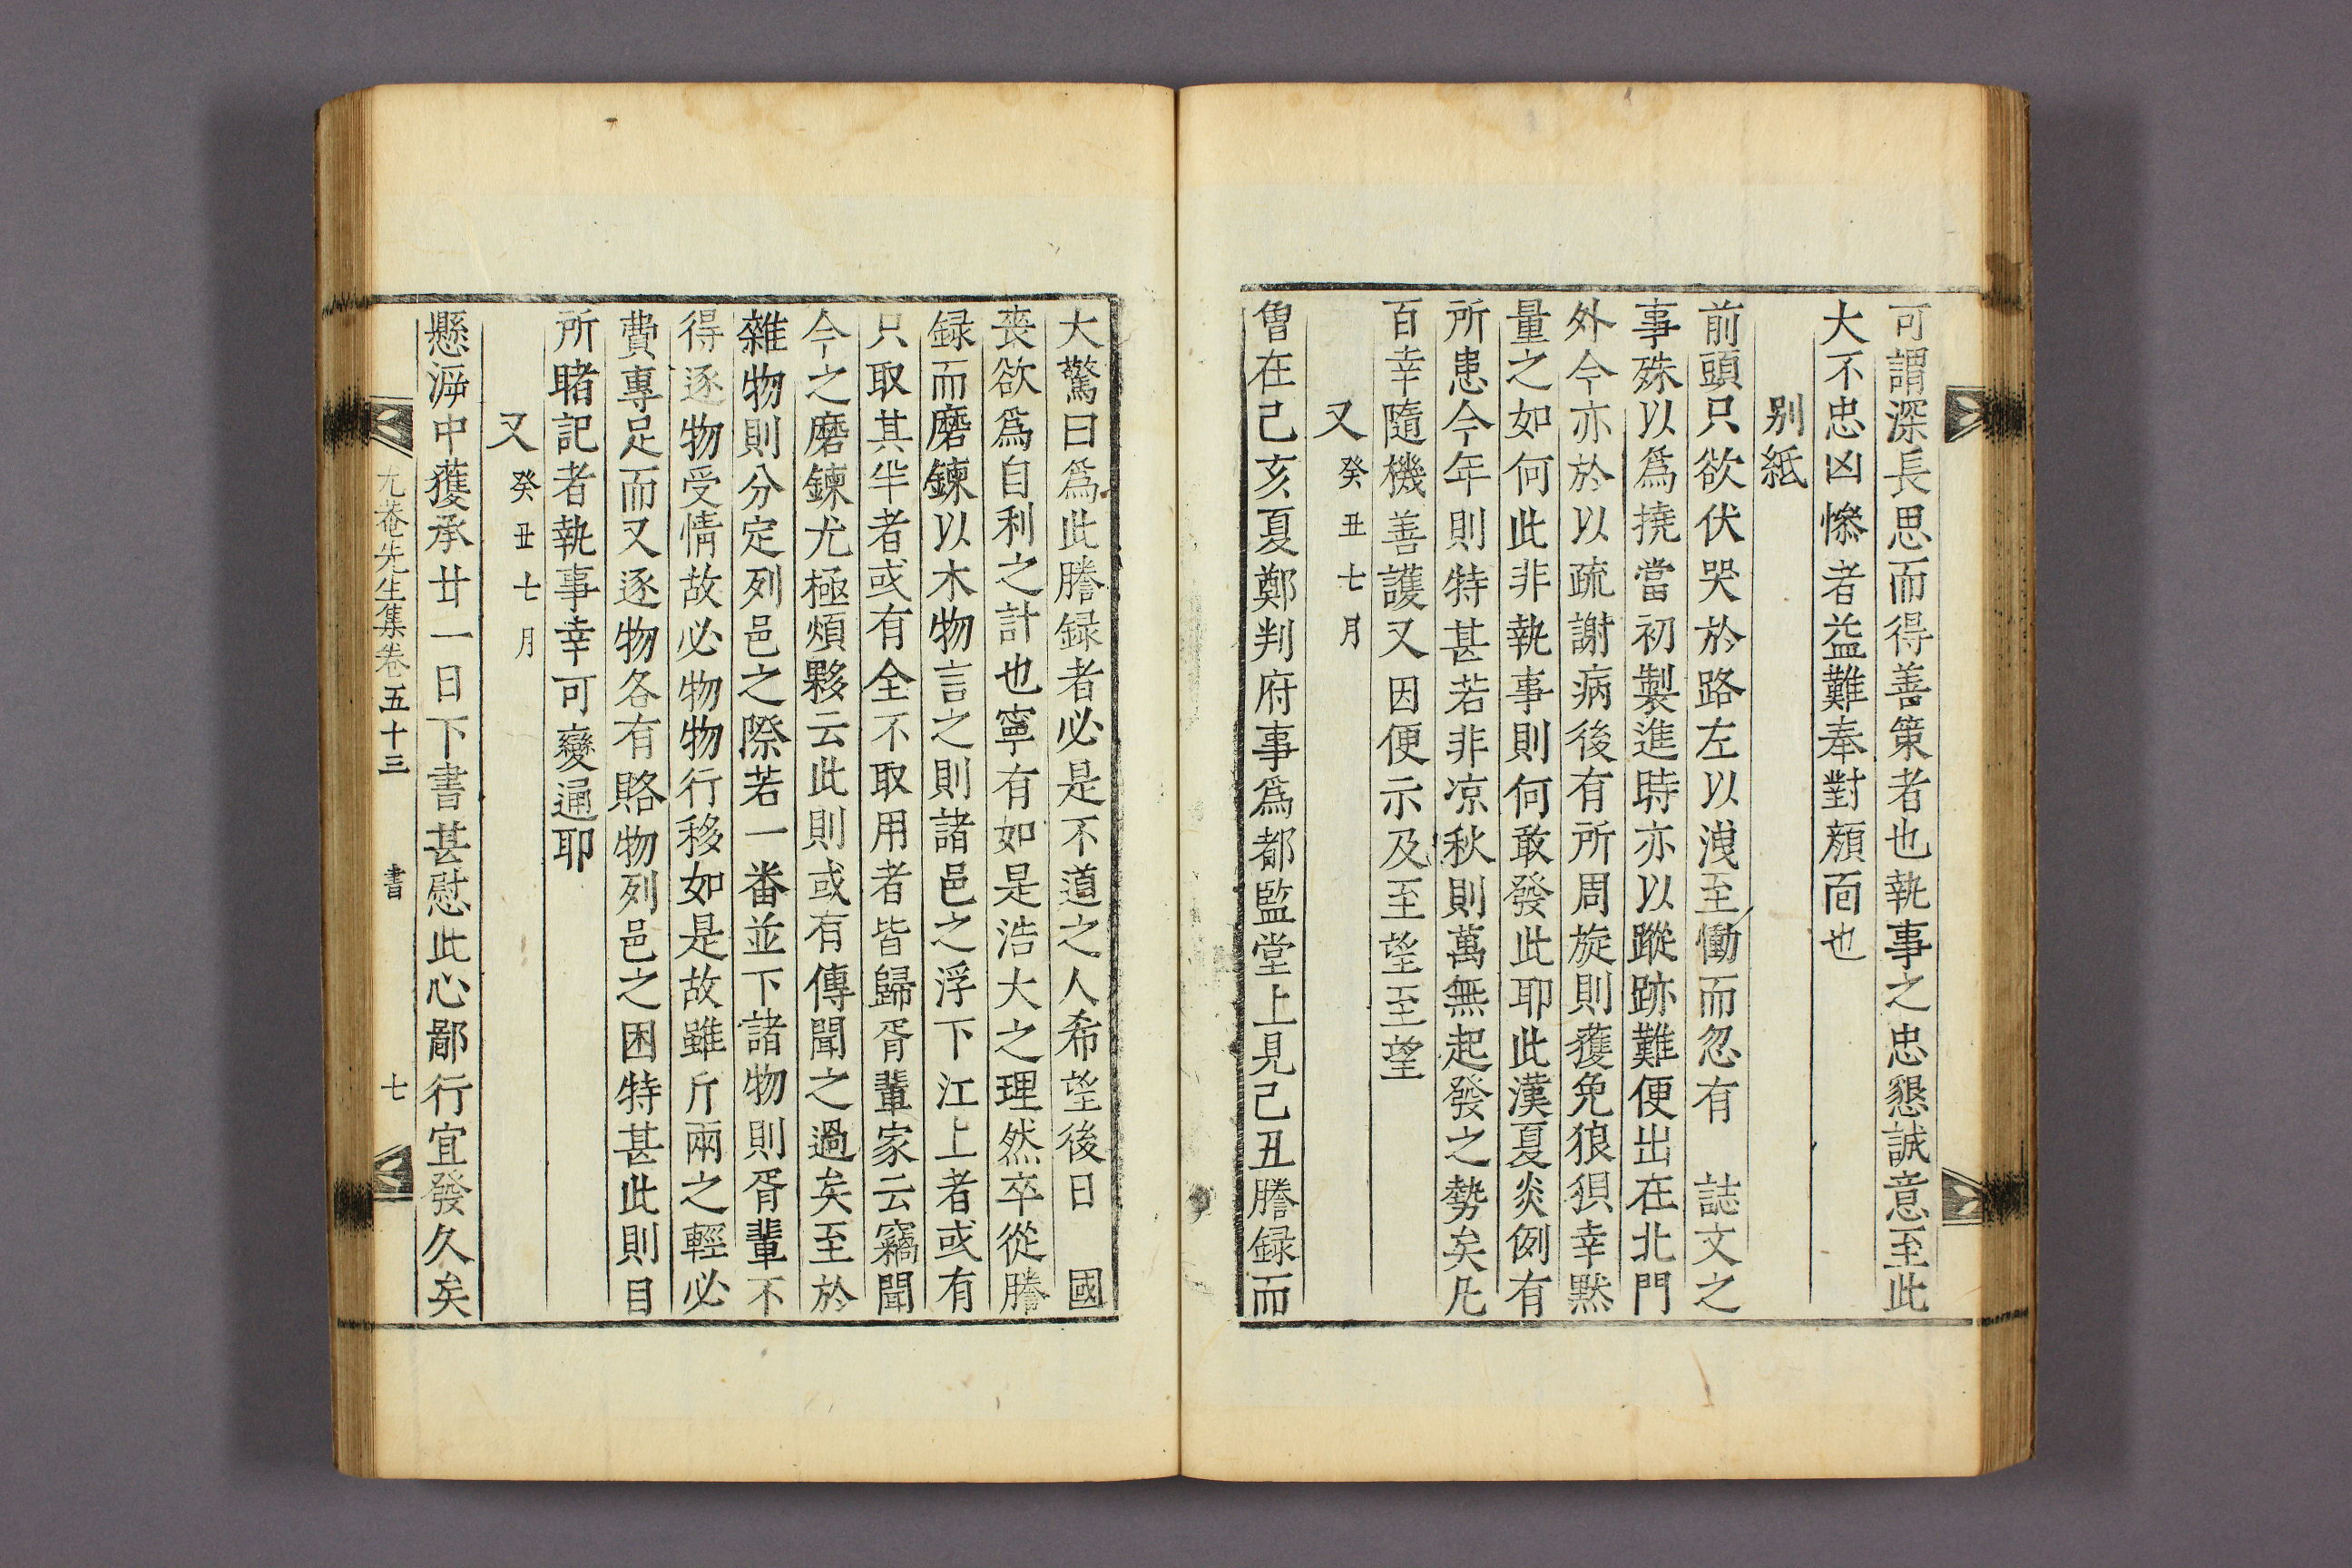 可謂深長思而得善策者也執事之忠懇誠意至此
大不忠凶慘者益難奉對顔面也
别紙
前頭只欲伏哭於路左以洩至慟而忽有 誌文之
事殊以爲撓當初製進時亦以蹤跡難便出在北門
外今亦於以疏謝病後有所周旋則獲免狼狽幸黙
量之如何此非執事則何敢發此耶此漢夏炎例有
所患今年則特甚若非凉秋則萬無起發之勢矣凡
百幸隨機善護又因便示及至望至望
又 癸丑七月
曾在己亥夏鄭判府事爲都監堂上見己丑謄録而
大驚曰爲此謄録者必是不道之人希望後日 國
喪欲爲自利之計也寧有如是浩大之理然卒從謄
録而磨鍊以木物言之則諸邑之浮下江上者或有
只取其半者或有全不取用者皆歸胥輩家云竊聞
今之磨鍊尤極煩夥云此則或有傳聞之過矣至於
雜物則分定列邑之際若一番並下諸物則胥輩不
得逐物受情故必物物行移如是故雖斤兩之輕必
費專足而又逐物各有賂物列邑之困特甚此則目
所睹記者執事幸可變通耶
又 癸丑七月
懸泝中獲承廿一日下書甚慰此心鄙行宜發久矣
尤菴先生集卷五十三 書 七